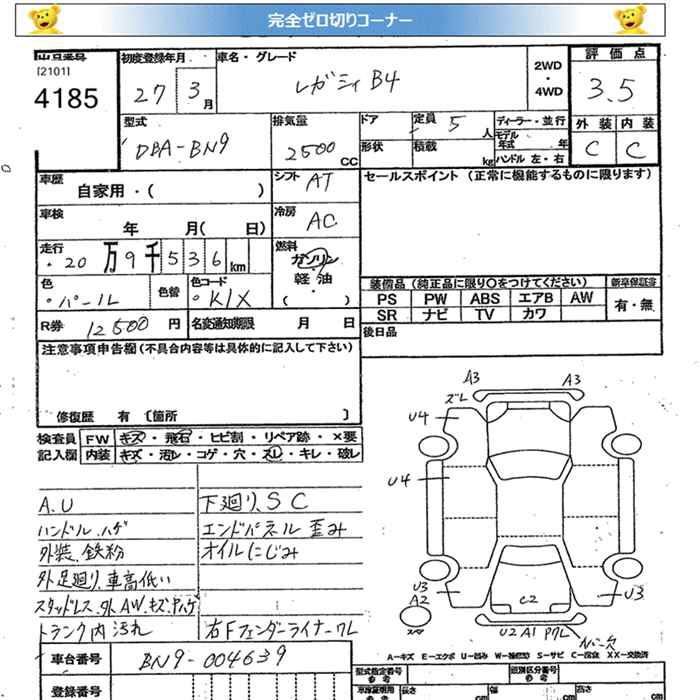 完全ゼロ切りコーナー
出品番号 初度登録年月 車名・グレード 2WD・4WD 評価点
[2101]
4185 27 3月 レガシィ B4 3.5
型式 排気量 ドア 定員 5人 ディーラー・並行 外装 内装
DBA-BN9 2500CC 形状 積載 kg モデル年式 年 C C
ハンドル 左・右
車歴 自家用・( ) シフト AT セールスポイント (正常に機能するものに限ります)
車検 年 月( 日) 冷房 AC
走行 20万9千536km 燃料 ガソリン
軽油
・( )
色 パール 色替 色コード K1X
装備品 (純正品に限り〇をつけてください) 新車保証書
PS PW ABS エアB AW 有・無
SR ナビ TV カワ
R券 12500円 名変通知期限 月 日 後日品
注意事項申告欄 (不具合内容等は具体的に記入して下さい)
修復歴 有 〔箇所 〕
検査員 FW キズ・飛石・ヒビ割・リペア跡・×要
記入欄 内装 キズ・汚レ・コゲ・穴・スレ・キレ・破レ
A.U 下廻り、SC
ハンドル ハゲ エンドパネル 歪み
外装、鉄粉 オイルにじみ
外足廻り、車高低い
スタッドレス、外AW、キズ、ハゲ
トランク内 汚れ 右Fフェンダーライナーワレ
A3 A3
ズレ
U4
U4
U3
A2
C2
U3
U2 A1 Pワレ
A-キズ E-エクボ U-凹み W-補修(跡) S-サビ C-腐食 XX-交換済
車台番号 BN9-004639
型式指定番号 類別区分番号
登録番号 長さ cm 幅 cm 高さ cm